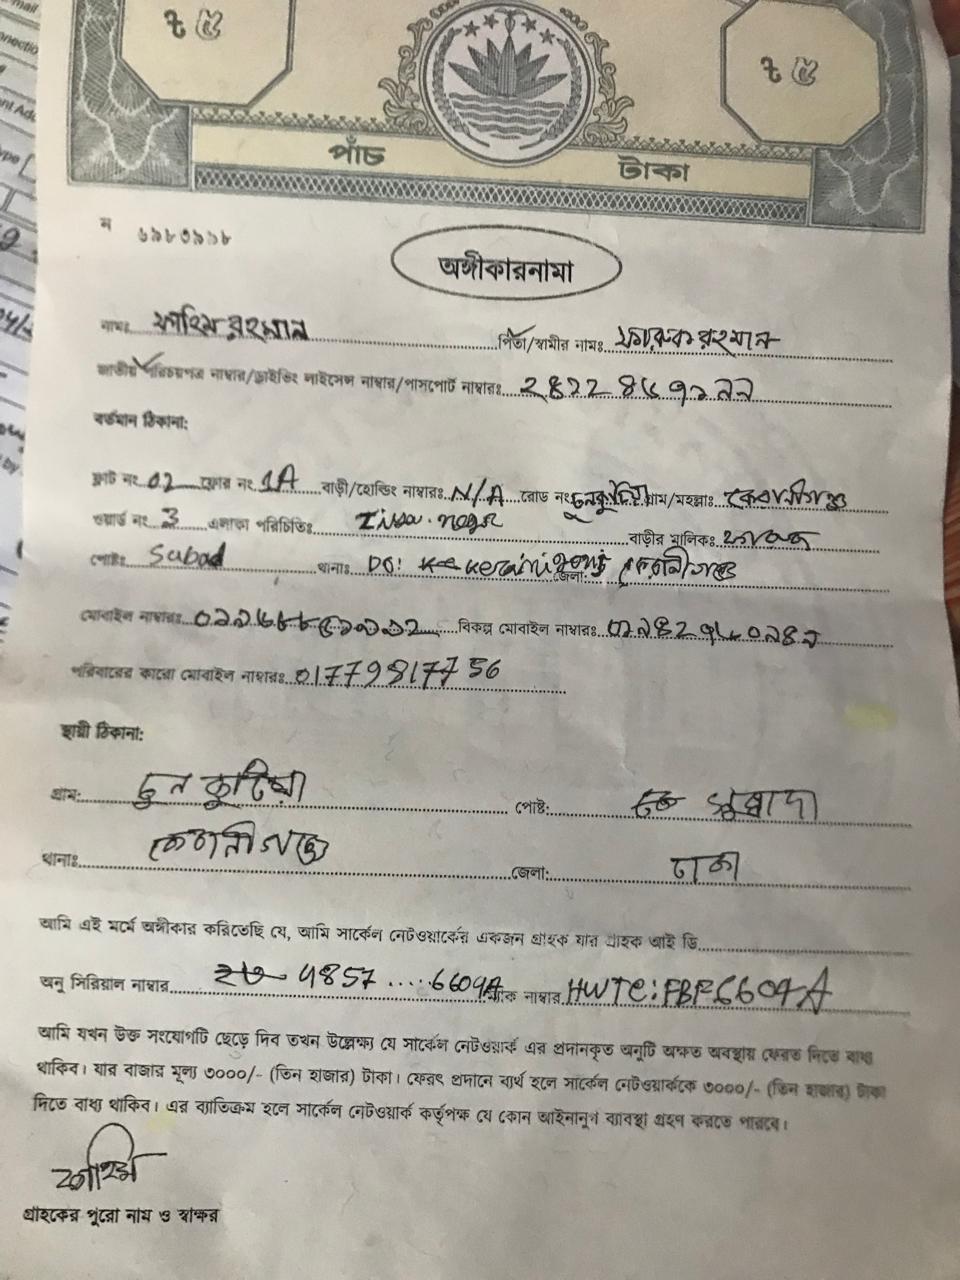 ৳ ৫ ৳ ৫
পাঁচ টাকা
ম ৬৯৮৩৯৯৮
অঙ্গীকারনামা
নামঃ ফাহিম রহমান পিতা/স্বামীর নামঃ ফারুক রহমান
জাতীয় পরিচয়পত্র নাম্বার/ড্রাইভিং লাইসেন্স নাম্বার/পাসপোর্ট নাম্বারঃ
বর্তমান ঠিকানা:
ফ্লাট নং 02 ফ্লোর নং 1A বাড়ী/হোল্ডিং নাম্বারঃ N/A রোড নং চুনকুটিয়া গ্রাম/মহল্লাঃ কেরানীগঞ্জ
ওয়ার্ড নং 3 এলাকা পরিচিতিঃ বাড়ীর মালিকঃ
পোষ্টঃ থানাঃ জেলা: কেরানীগঞ্জ
মোবাইল নাম্বারঃ বিকল্প মোবাইল নাম্বারঃ
পরিবারের কারো মোবাইল নাম্বারঃ 01779817756
স্থায়ী ঠিকানা:
গ্রাম: চুন কুটিয়া পোষ্ট:
থানাঃ কেরানীগঞ্জ জেলা: ঢাকা
আমি এই মর্মে অঙ্গীকার করিতেছি যে, আমি সার্কেল নেটওয়ার্কের একজন গ্রাহক যার গ্রাহক আই ডি
অনু সিরিয়াল নাম্বার 4857 .....6609A ম্যাক নাম্বার
আমি যখন উক্ত সংযোগটি ছেড়ে দিব তখন উল্লেক্ষ্য যে সার্কেল নেটওয়ার্ক এর প্রদানকৃত অনুটি অক্ষত অবস্থায় ফেরত দিতে বাধ্য
থাকিব। যার বাজার মূল্য ৩০০০/- (তিন হাজার) টাকা। ফেরৎ প্রদানে ব্যর্থ হলে সার্কেল নেটওয়ার্ককে ৩০০০/- (তিন হাজার) টাকা
দিতে বাধ্য থাকিব। এর ব্যাতিক্রম হলে সার্কেল নেটওয়ার্ক কর্তৃপক্ষ যে কোন আইনানুগ ব্যাবস্থা গ্রহণ করতে পারবে।
ফাহিম
গ্রাহকের পুরো নাম ও স্বাক্ষর